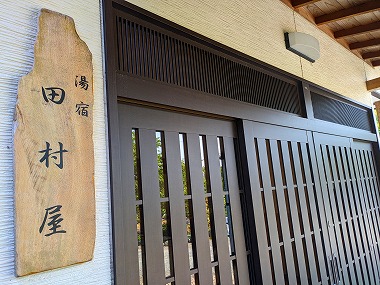 湯宿
田村屋